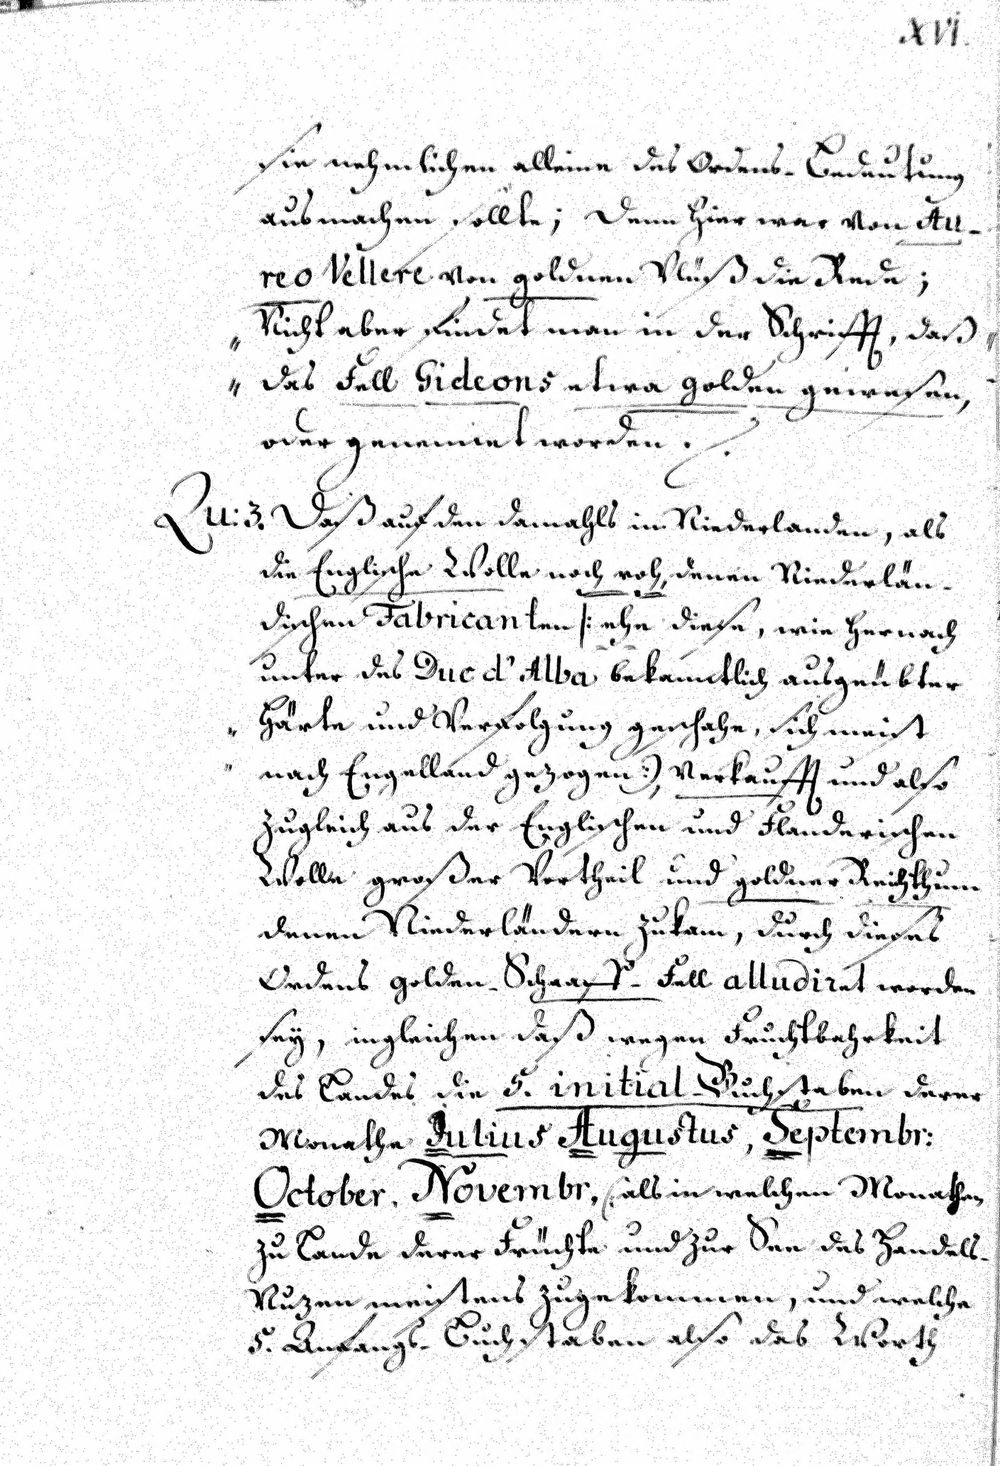 XVI.
sie nehmlichen alleine des Ordens-Bedeutung
ausmachen sollte; Denn hier war von Au-
reo Vellere von goldnen Vlüß die Rede;
" Nicht aber findet man in der Schrifft, daß "
" das Fell Gideons etwa golden gewesen,
oder genennet worden.
Zu: 3. Daß auf den damahls in Niederlanden, als
die Englische Wolle noch roh, denen Niederlän-
dischen Fabricanten /: ehe diese, wie hernach
unter des Duc d'Alba bekanntlich ausgeübter
" Härte und Verfolgung geschahe, sich meist
" nach Engelland gezogen :/, verkaufft und also
zugleich aus der Englischen und Flanderischen
Wolle großer Vortheil und goldner Reichthum
denen Niederländern zukam, durch dieses
Ordens golden-Schaaff-Fell alludiret worden
sey, ingleichen daß wegen Fruchtbahrkeit
des Landes die 5. initial-Buchstaben derer
Monathe Julius Augustus, Septembr:
October, Novembr, /: als in welchen Monathen
zu Lande derer Früchte und zur See des Handels-
Nuzen meistens zugekommen, und welche
5. Anfangs-Buchstaben also das Worth